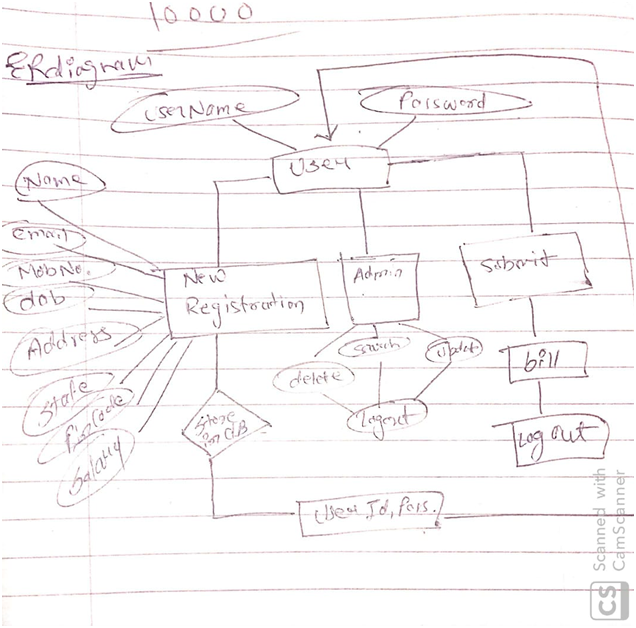 10000
ERdiagram
UserName
Password
User
Name
email
MobNo.
dob
Address
State
PinCode
Salary
New
Registration
Admin
Submit
search
update
delete
Logout
bill
Log out
Store
in DB
User Id, Pass.
Scanned with
CamScanner
CS